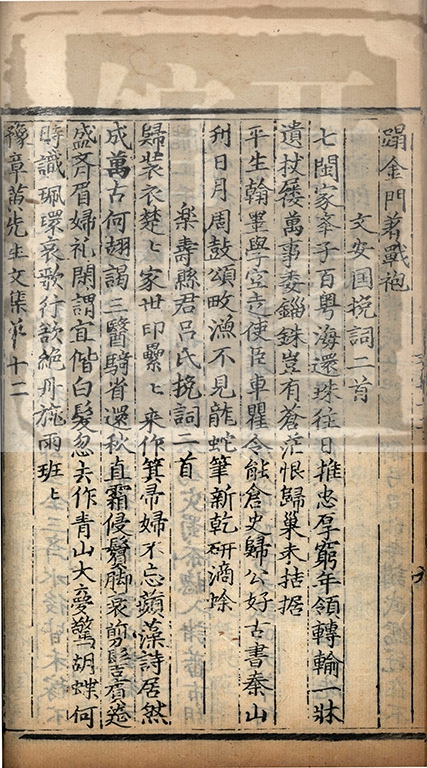 蹋金門著戰袍
文安国挽詞二首
七閩家舉子百粤海還珠往日推忠孚窮年領轉輸一牀
遺杖屨萬事委錙銖豈有蒼茫恨歸巢未拮据
平生翰墨學空走使臣車瞿令能倉史歸公好古書秦山
刋日月周鼓頌畋漁不見龍蛇筆新乾研滴蜍
樂壽縣君吕氏挽詞二首
歸裝衣楚〻家世印纍〻來作箕帚婦不忘蘋藻詩居然
成萬古何翅謁三醫騎省還秋直霜侵鬢脚衰剪髻賓筵
盛齊眉婦礼閑謂宜偕白髪忽去作青山大夢驚胡蝶何
時識珮環哀歌行欲絶丹旐雨班〻
豫章黄先生文集第十二